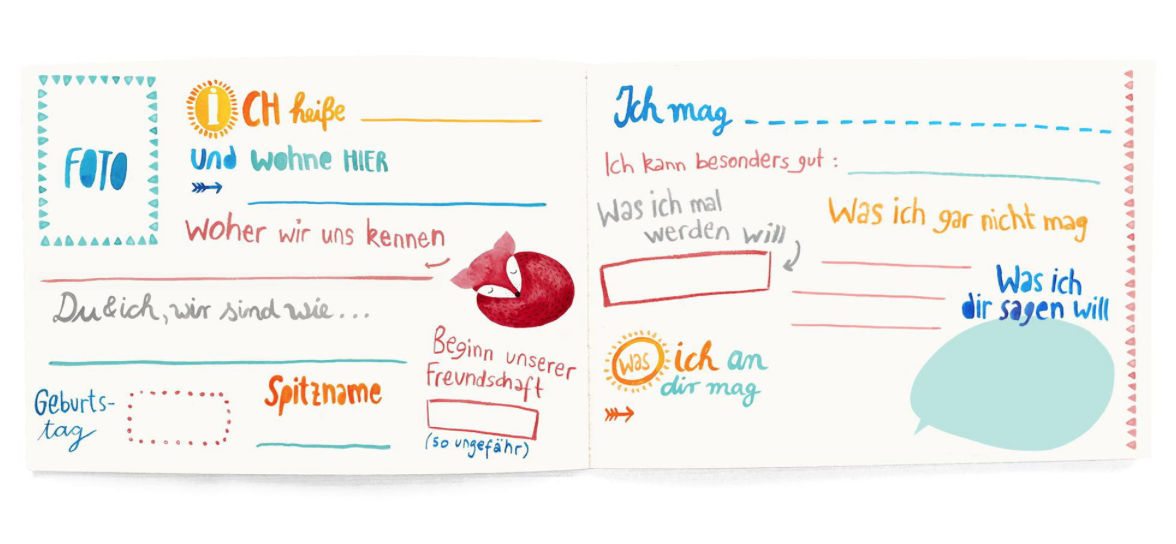 FOTO
ICH heiße
und wohne HIER
Woher wir uns kennen
Du & ich, wir sind wie...
Geburts-
tag
Spitzname
Beginn unserer
Freundschaft
(so ungefähr)
Ich mag
Ich kann besonders gut :
Was ich mal
werden will
Was ich gar nicht mag
Was ich
dir sagen will
Was ich an
dir mag